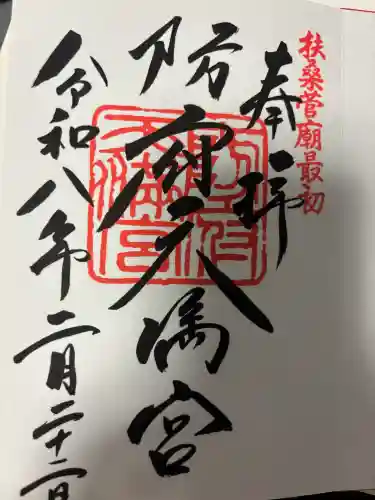 扶桑菅廟最初
奉拝
防府天満宮
防府天満宮
令和八年二月二十二日